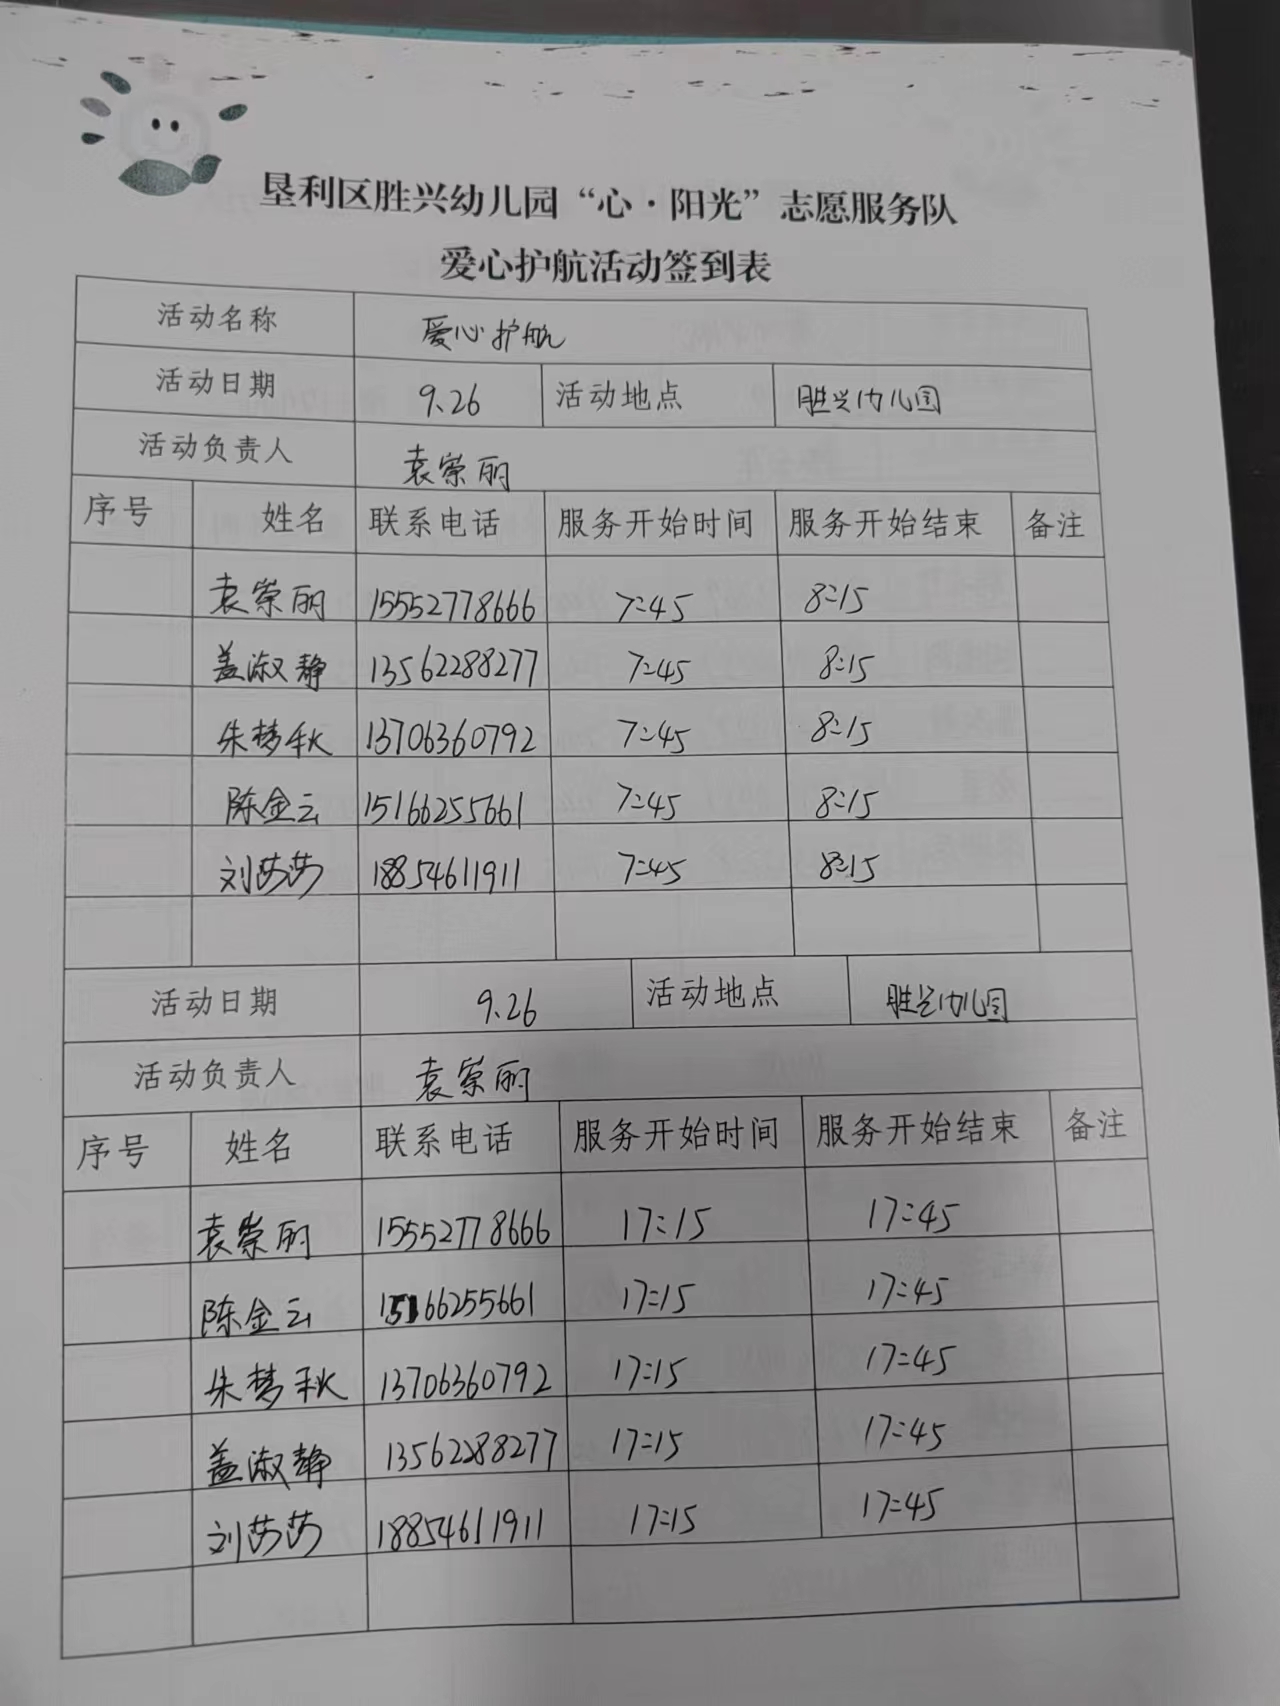 垦利区胜兴幼儿园“心·阳光”志愿服务队
爱心护航活动签到表
活动名称 爱心护航
活动日期 9.26 活动地点 胜兴幼儿园
活动负责人 袁崇丽
序号 姓名 联系电话 服务开始时间 服务开始结束 备注
袁崇丽 15552778666 7:45 8:15
盖淑静 13562288277 7:45 8:15
朱梦秋 13706360792 7:45 8:15
陈金云 15166255661 7:45 8:15
刘莎莎 18854611911 7:45 8:15
活动日期 9.26 活动地点 胜兴幼儿园
活动负责人 袁崇丽
序号 姓名 联系电话 服务开始时间 服务开始结束 备注
袁崇丽 15552778666 17:15 17:45
陈金云 15166255661 17:15 17:45
朱梦秋 13706360792 17:15 17:45
盖淑静 13562288277 17:15 17:45
刘莎莎 18854611911 17:15 17:45